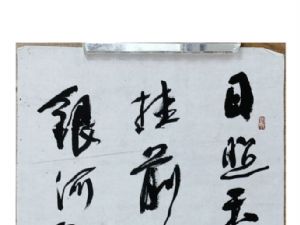 日照
挂前
銀河